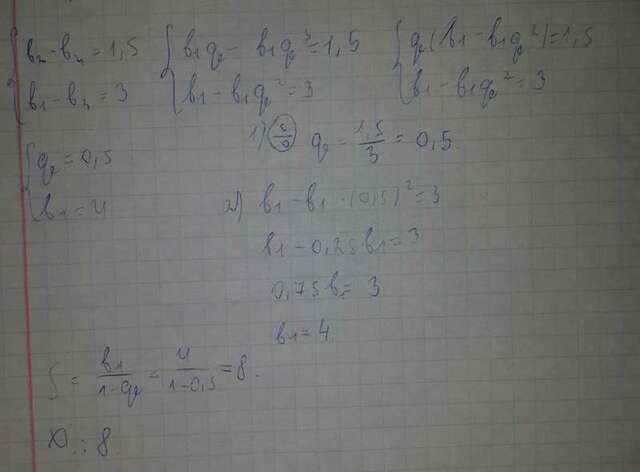 { b₂ - b₄ = 1,5 { b₁q - b₁q³ = 1,5 { q(b₁ - b₁q²) = 1,5
{ b₁ - b₃ = 3 { b₁ - b₁q² = 3 { b₁ - b₁q² = 3
1) q = 1,5/3 = 0,5
{ q = 0,5
{ b₁ = 4 2) b₁ - b₁ · (0,5)² = 3
b₁ - 0,25b₁ = 3
0,75b₁ = 3
b₁ = 4
S = b₁/(1-q) = 4/(1-0,5) = 8.
O.: 8